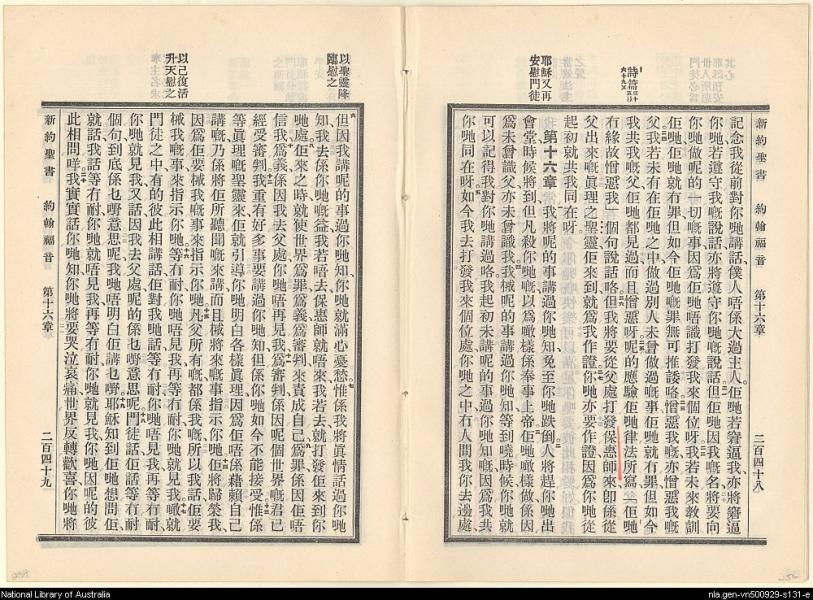 新約聖書 約翰福音 第十六章 二百四十八
記念我從前對你哋講話僕人唔係大過主人佢哋若窘逼我亦將窘逼
你哋若遵守我嘅說話亦將遵守你哋嘅說話但佢哋因我嘅名將要向
你哋做呢的一切嘅事因爲佢哋唔識打發我來個位呀我若未來教訓
佢哋佢哋就有罪但如今佢哋嘅罪無可推諉咯憎惡我嘅亦憎惡我嘅
父我若未有在佢哋之中做過別人未曾做過嘅事佢哋就有罪但如今
我共我嘅父佢哋都見過而且憎惡呀呢的應驗佢哋律法所寫「佢哋
有緣故憎惡我」個句說話咯但我將要從父處打發保惠師來卽係從
父出來嘅眞理之聖靈佢來到就爲我作證你哋亦要作證因爲你哋從
起初就共我同在呀
第十六章 我將呢的事講過你哋知免至你哋跌倒人將趕你哋出
會堂時候將到但凡殺你哋嘅以爲噉樣係奉事上帝佢哋噉樣做係因
爲未曾識父亦未曾識我我將呢的事講過你哋知等到嘵時候你哋就
可以記得我對你哋講過咯我起初未講呢的事過你哋知嘅因爲我共
你哋同在呀如今我去打發我來個位處你哋之中有人問我你去邊處
詩篇
耶穌又再
安慰門徒
但因我講呢的事過你哋知你哋就滿心憂愁惟係我將眞情話過你哋
知我去係你哋嘅益我若唔去保惠師就唔來我若去就打發佢來到你
哋處佢來之時就使世界爲罪爲義爲審判來責成自己爲罪係因佢唔
信我爲義係因我去父處你哋唔再見我爲審判係因呢個世界嘅君已
經受審判我重有好多事要講過你哋知但係你哋如今不能接受惟係
等眞理嘅聖靈來佢就引導你哋明白各樣眞理因爲佢唔係藉賴自己
講嘅乃係將佢所聽聞嘅來講而且將來嘅事指示你哋佢將歸榮我
因爲佢要將我嘅事來指示你哋凡父所有嘅都係我嘅所以我話佢要
將我嘅事來指示你哋等有耐你哋唔見我再等有耐你哋就見我嗽就
門徒之中有的彼此相講話佢對我哋話等有耐你哋唔見我再等有耐
你哋就見我又話因我去父處呢的係乜嘢意思呢門徒話佢話等有耐
個句到底係乜嘢意思呢我哋唔明白佢講乜嘢耶穌知到佢哋想問佢
就話我話等有耐你哋就唔見我再等有耐你哋就見我你哋因呢的彼
此相問咩我實實話你哋知你哋將要哭泣哀痛世界反轉歡喜你哋將
新約聖書 約翰福音 第十六章 二百四十九
以聖靈降
臨慰之
以己復活
升天慰之
National Library of Australia
nla.gen-vn500929-s131-e